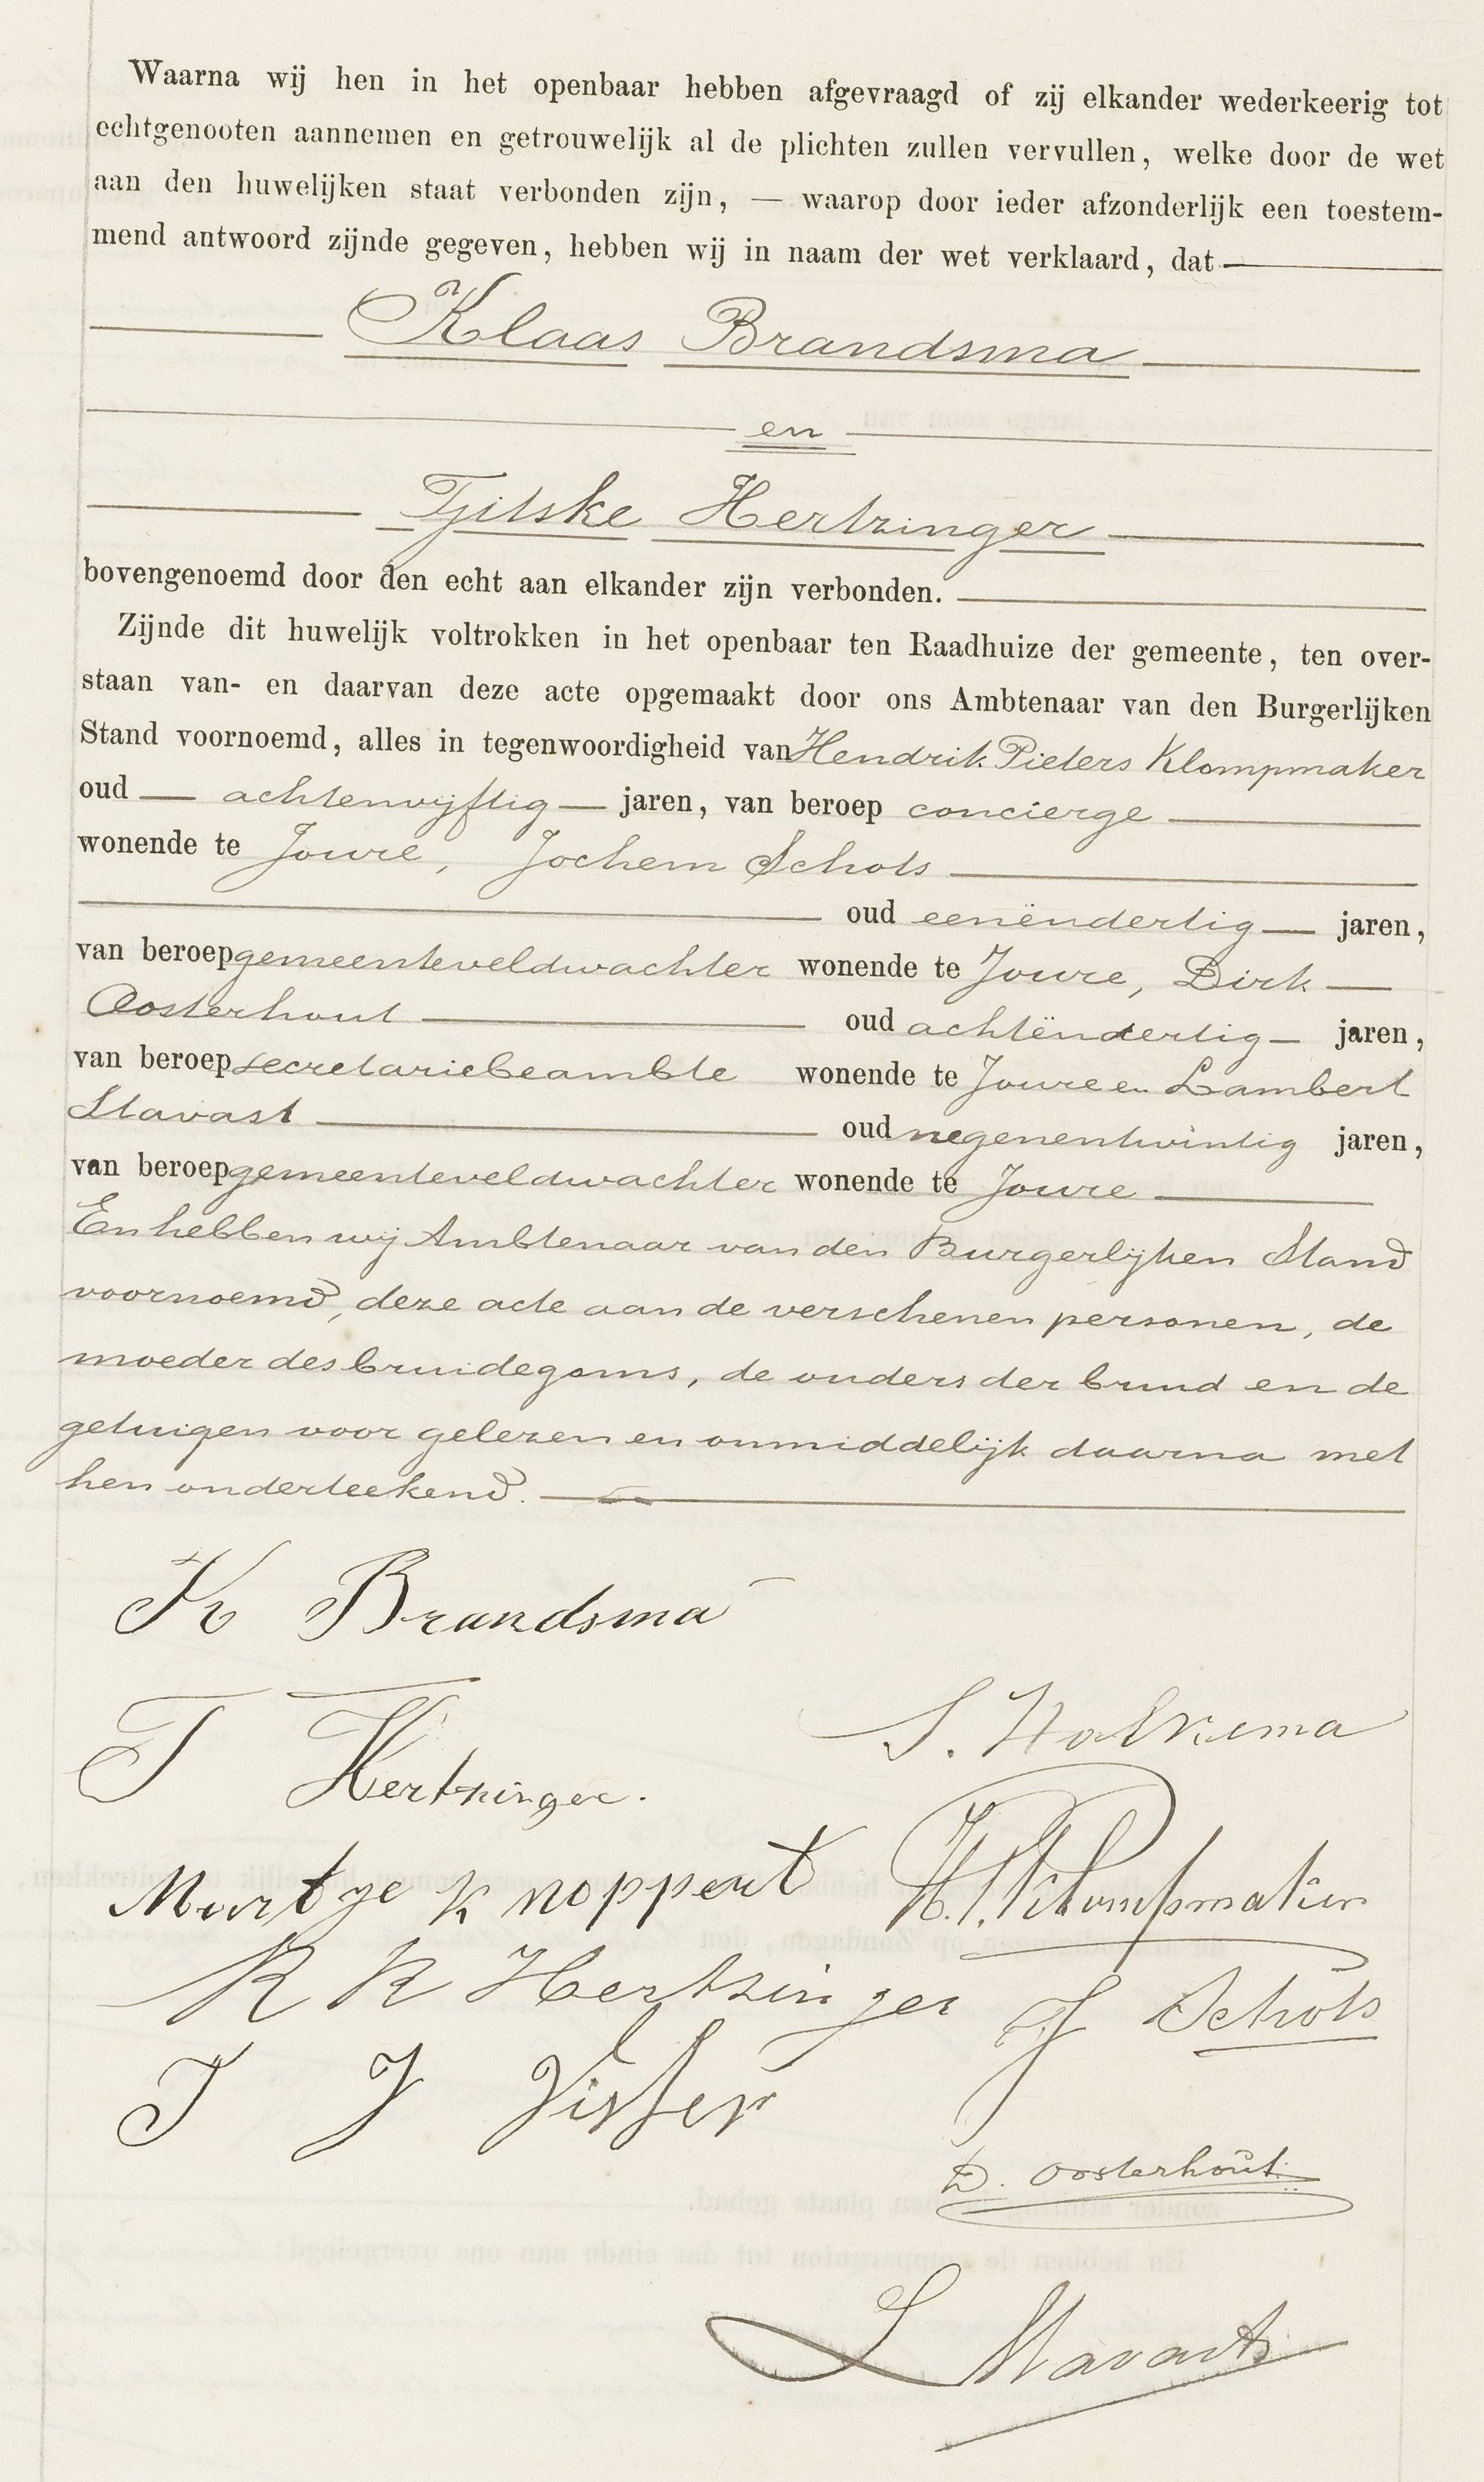 Waarna wij hen in het openbaar hebben afgevraagd of zij elkander wederkeerig tot
echtgenooten aannemen en getrouwelijk al de plichten zullen vervullen, welke door de wet
aan den huwelijken staat verbonden zijn, — waarop door ieder afzonderlijk een toestem-
mend antwoord zijnde gegeven, hebben wij in naam der wet verklaard, dat
Klaas Brandsma
en
Tjitske Hertzinger
bovengenoemd door den echt aan elkander zijn verbonden.
Zijnde dit huwelijk voltrokken in het openbaar ten Raadhuize der gemeente, ten over-
staan van- en daarvan deze acte opgemaakt door ons Ambtenaar van den Burgerlijken
Stand voornoemd, alles in tegenwoordigheid van Hendrik Pieters Klompmaker
oud — achtenvijftig — jaren, van beroep concierge
wonende te Joure, Jochem Schots
oud eenëndertig — jaren,
van beroep gemeenteveldwachter wonende te Joure, Dirk —
Oosterhout oud achtëndertig — jaren,
van beroep secretariebeambte wonende te Joure en Lambert
Stavast oud negenentwintig jaren,
van beroep gemeenteveldwachter wonende te Joure
En hebben wij Ambtenaar van den Burgerlijken Stand
voornoemd, deze acte aan de verschenen personen, de
moeder des bruidegoms, de ouders der bruid en de
getuigen voor gelezen en onmiddelijk daarna met
hen onderteekend.
K Brandsma
T Hertzinger.
S. Halbema
Martje Knoppert
H. P. Klompmaker
R K Hertzinger
J Schots
T J Visser
D. Oosterhout
L Stavast